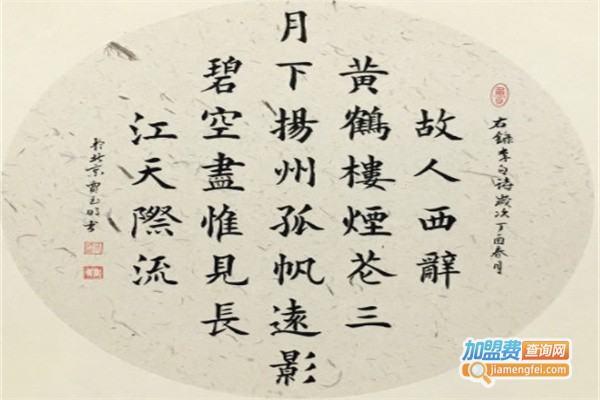 右錄李白詩歲次丁酉春月
故人西辭
黄鶴樓煙花三
月下揚州孤帆遠影
碧空盡惟見長
江天際流
於北京
加盟费查询网
jiamengfei.com